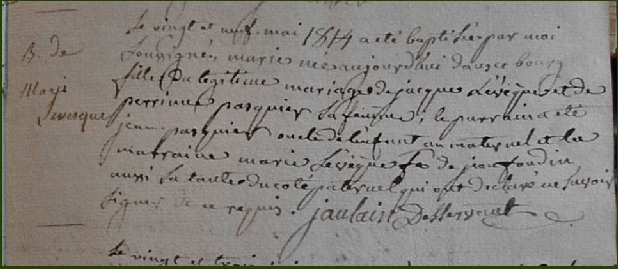 B. de
Marie
Levesque
Le vingt et neuf mai 1814 a été baptisée par moi
soussigné marie née aujourd'hui dans ce bourg
fille du légitime mariage de jacque Levêque et de
perrine pasquier sa femme ; le parrain a été
jean pasquier oncle de l'enfant au maternel et la
marraine marie Levêque fe de jean foudin
aussi sa tante du coté paternel qui ont declaré ne savoir
signer de ce requis. jaulain Desservant
Le vingt et trois